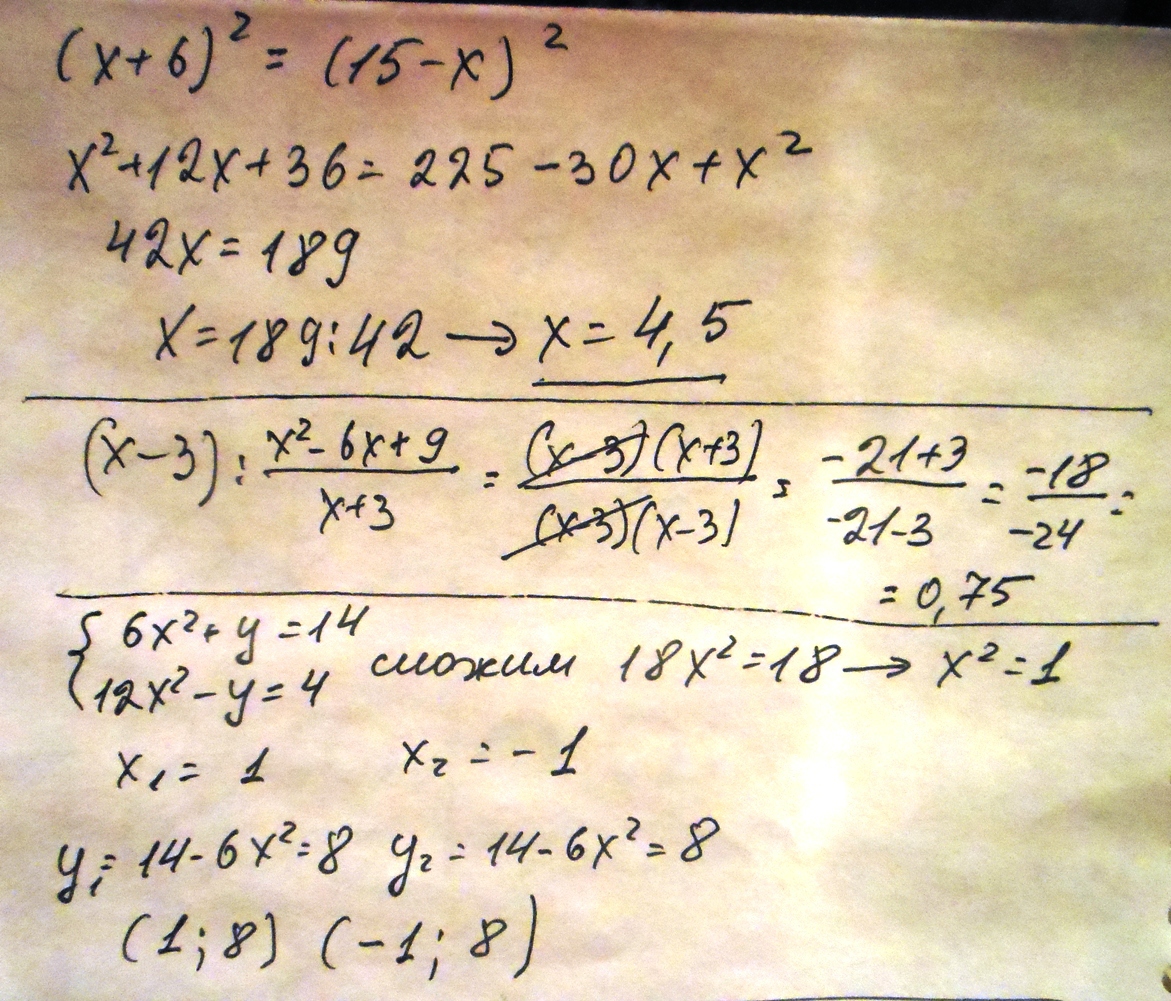 (x+6)² = (15-x)²
x²+12x+36 = 225-30x+x²
42x = 189
x = 189:42 → x = 4,5
(x-3) : (x²-6x+9)/(x+3) = (x-3)(x+3)/(x-3)(x-3) = (-21+3)/(-21-3) = -18/-24 =
= 0,75
{ 6x²+y = 14
{ 12x²-y = 4 сложим 18x² = 18 → x² = 1
x₁ = 1 x₂ = -1
y₁ = 14-6x² = 8 y₂ = 14-6x² = 8
(1; 8) (-1; 8)